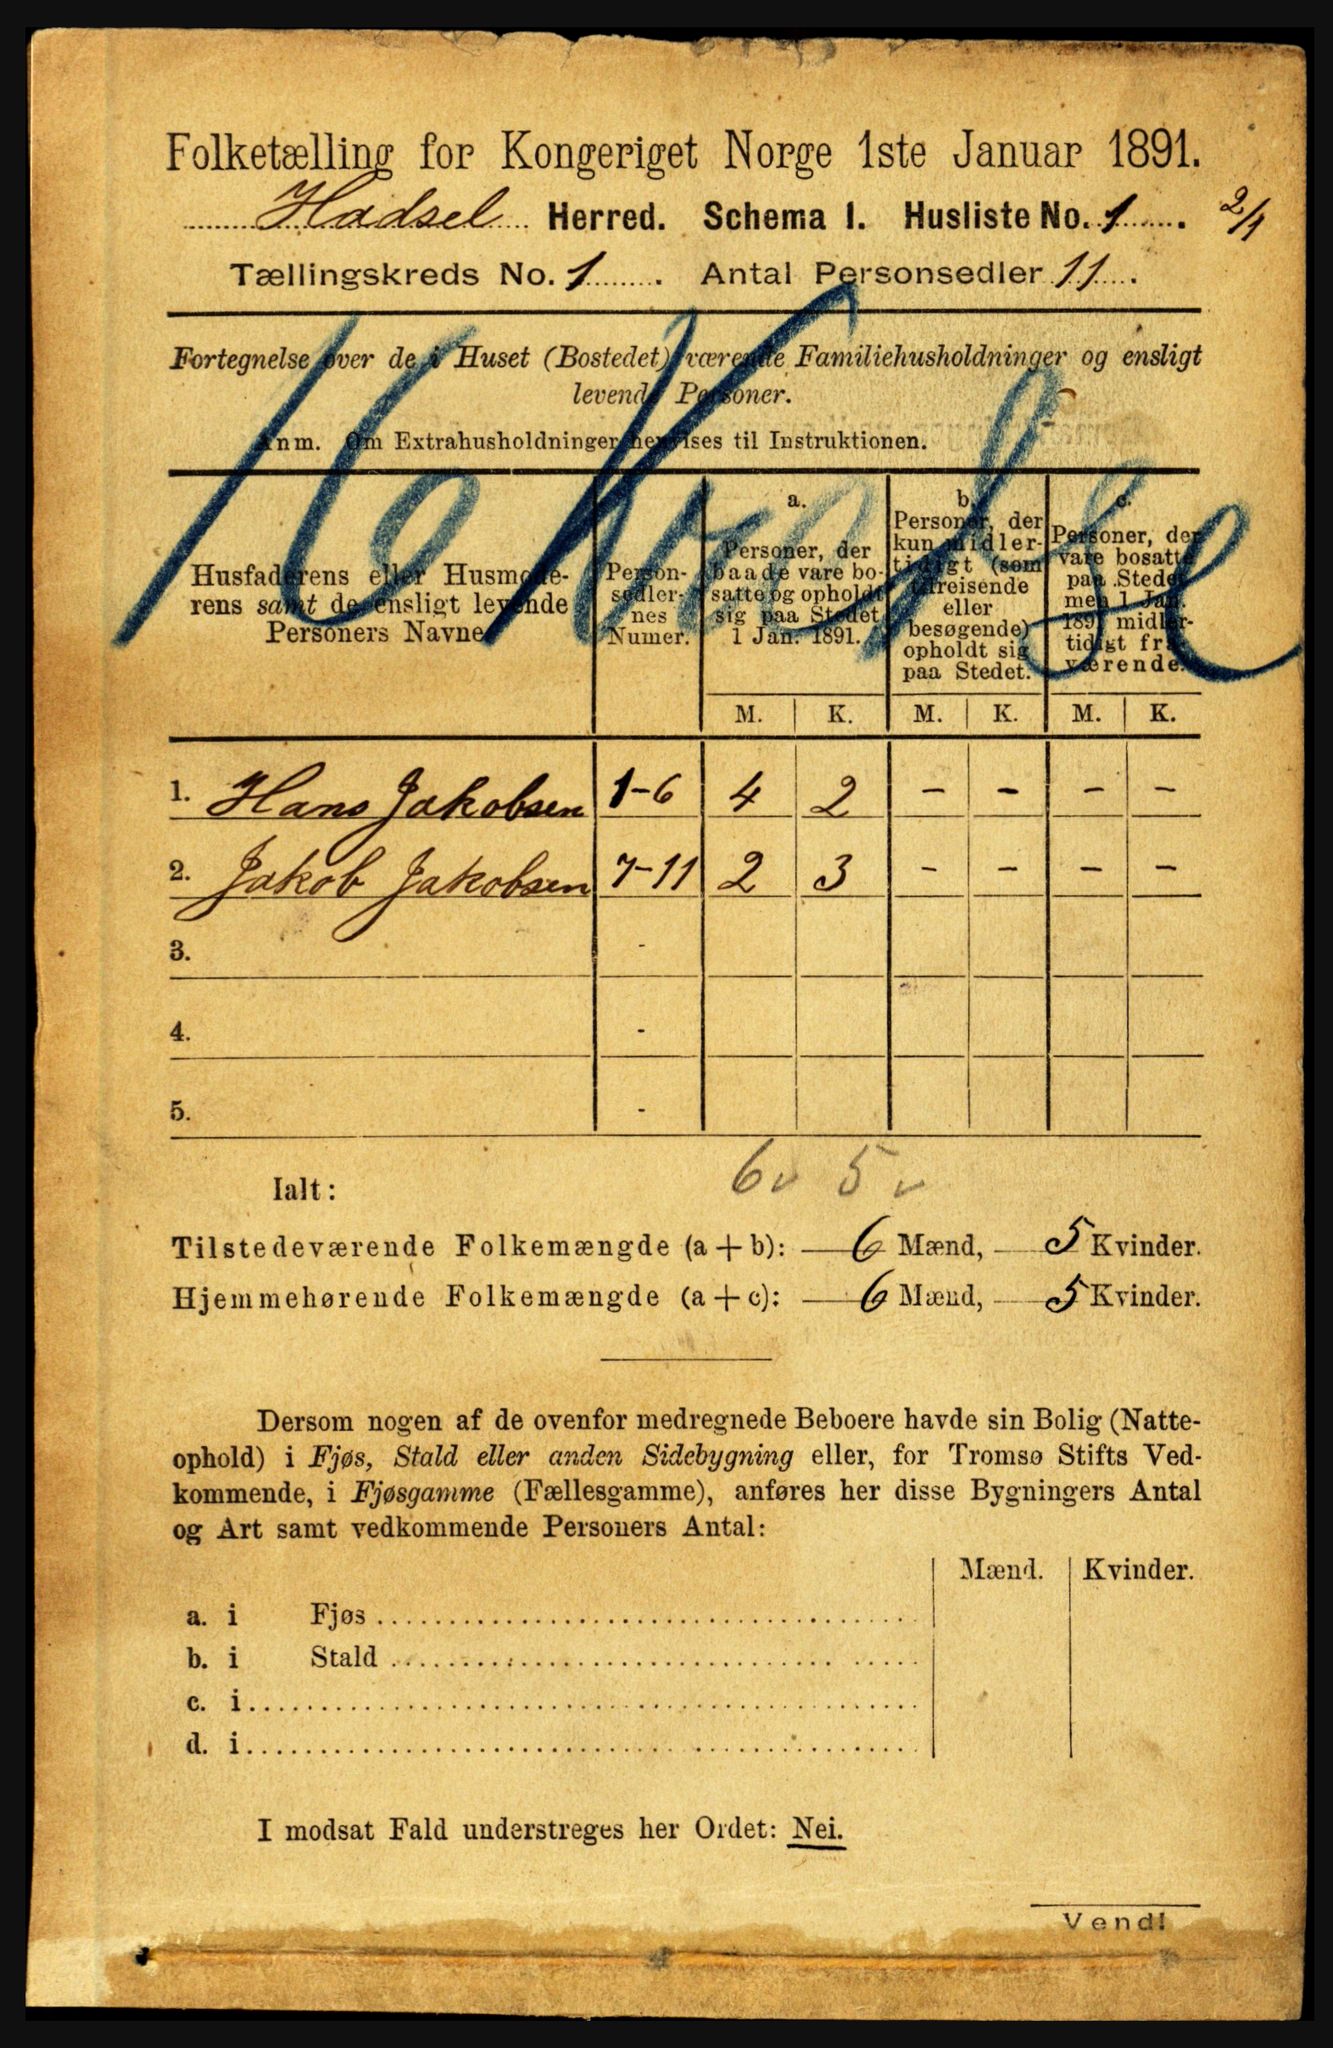 Folketælling for Kongeriget Norge 1ste Januar 1891.
Hadsel Herred. Schema I. Husliste No. 1. 2/1
Tællingskreds No. 1. Antal Personsedler 11.
Fortegnelse over de i Huset (Bostedet) værende Familiehusholdninger og ensligt
levende Personer.
Anm. Om Extrahusholdninger henvises til Instruktionen.
Husfaderens eller Husmode-
rens samt de ensligt levende
Personers Navne
Person-
sedler-
nes
Numer.
a.
Personer, der
baade vare bo-
satte og opholdt
sig paa Stedet
1 Jan. 1891.
b.
Personer, der
kun midler-
tidigt (som
tilreisende
eller
besøgende)
opholdt sig
paa Stedet.
c.
Personer, der
vare bosatte
paa Stedet
men 1 Jan.
1891 midler-
tidigt fra-
værende.
M. K. M. K. M. K.
1. Hans Jakobsen 1-6 4 2 - - - -
2. Jakob Jakobsen 7-11 2 3 - - - -
3. -
4. -
5. -
6 v 5 v
Ialt:
Tilstedeværende Folkemængde (a + b): 6 Mænd, 5 Kvinder.
Hjemmehørende Folkemængde (a + c): 6 Mænd, 5 Kvinder.
Dersom nogen af de ovenfor medregnede Beboere havde sin Bolig (Natte-
ophold) i Fjøs, Stald eller anden Sidebygning eller, for Tromsø Stifts Ved-
kommende, i Fjøsgamme (Fællesgamme), anføres her disse Bygningers Antal
og Art samt vedkommende Personers Antal:
Mænd. Kvinder.
a. i Fjøs
b. i Stald
c. i
d. i
I modsat Fald understreges her Ordet: Nei.
Vend!